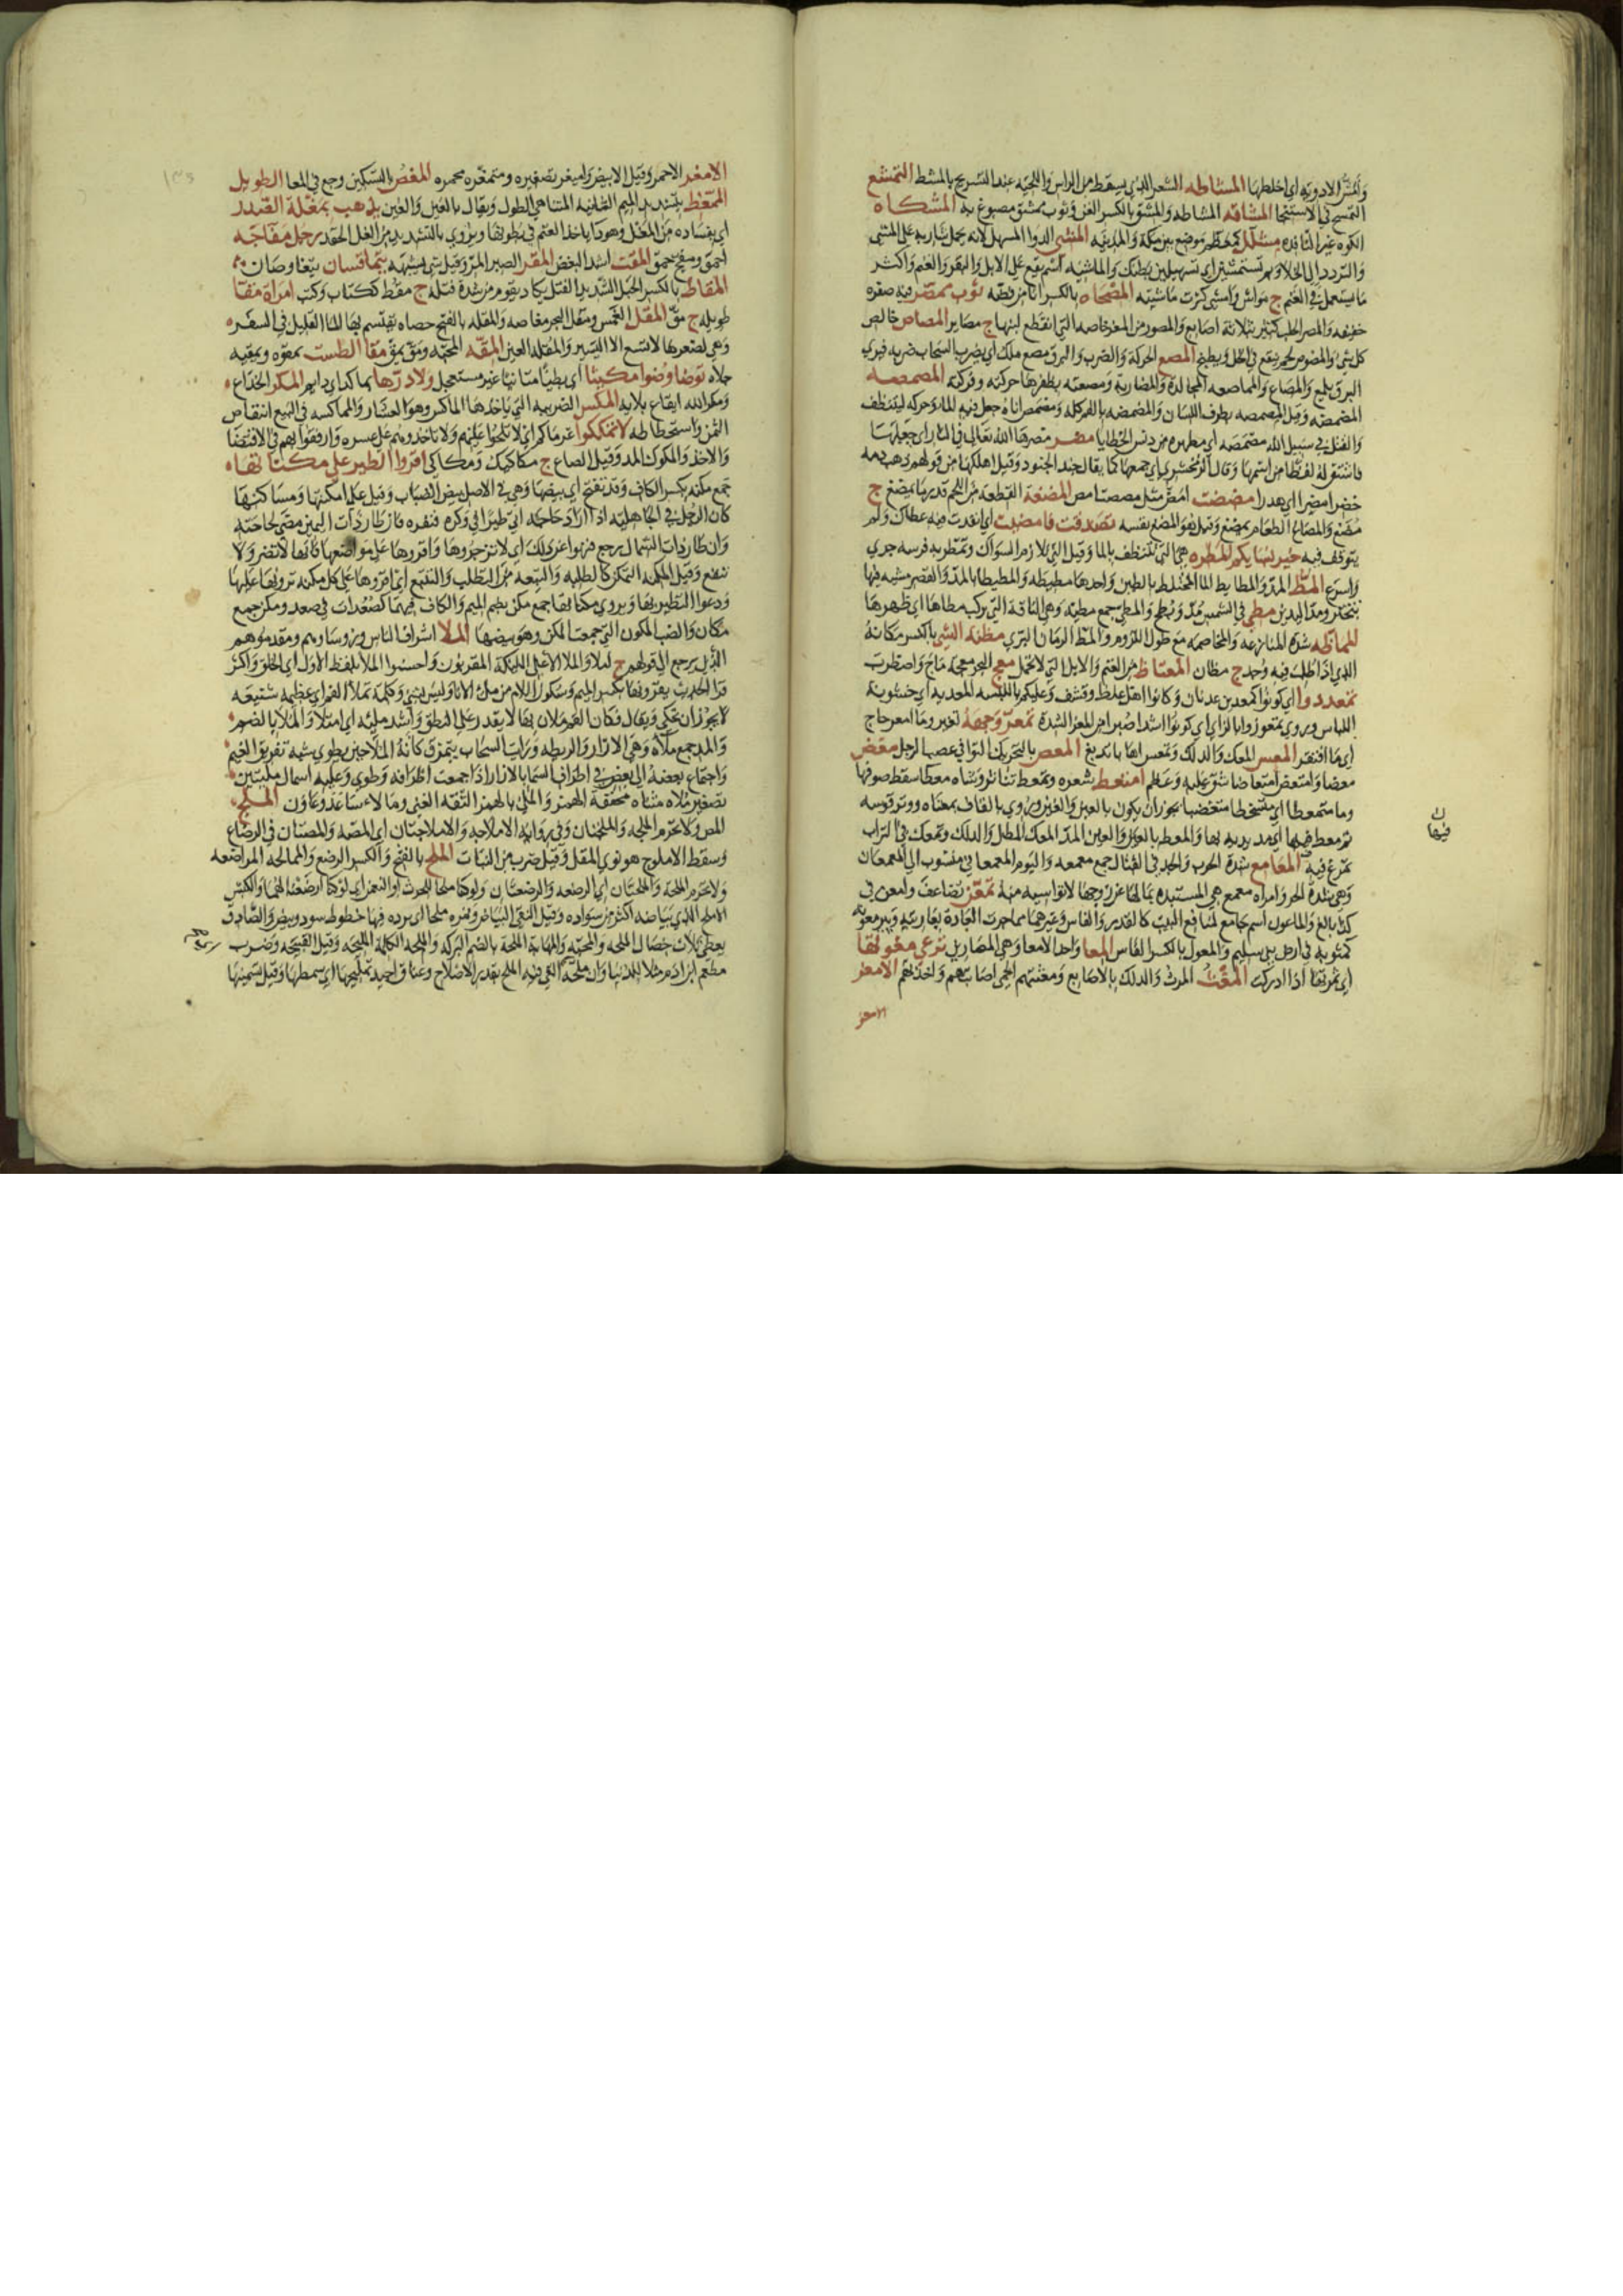 وَمَشَّ الادوية اي خلطها المشاطه الشعر الذي يسقط من الراس واللحية عند التسريح بالمشط التمشع
التمسح في الاستنجا المشاقه المشاطه والمشق بالكسر المغرة وثوب ممشق مصبوغ به المشكاه
الكوه غير النافذه مشلل كمعظم موضع بين مكة والمدينه المشي الدوا المسهل لانه يحمل شاربه على المشي
والتردد الى الخلا وبم تستمشين اي تسهلين بطنك والماشيه اسم يقع على الابل والبقر والغنم واكثر
ما يستعمل في الغنم ج مواش وامشى كثرت ماشيته المصحاه بالكسر انا من فضه ثوب ممصر فيه صفره
خفيفه والمصر الحلب بثلاثة اصابع والمصور من المعز خاصه التي انقطع لبنها ج مصاير المصاص خالص
كل شي والمصوص لحم ينقع في الخل ويطبخ المصع الحركة والضرب والبرق مصع ملك اي يضرب السحاب ضربه فيري
البرق يلمع والمصاع والمماصعه المجالدة والمضاربة ومصعته بظفرها حركته وفركته المصمصه
المضمضه وقيل المصمصه بطرف اللسان والمضمضه بالفم كله ومصمص اناه جعل فيه الماء وحركه ليتنظف
والقتل في سبيل الله مصمصه اي مطهره من دنس الخطايا مضر مضرها الله تعالى في النار اي جعلها
فاشتق له لفظا من اسمها وقال الزمخشري اي جمعها كما يقال جند الجنود وقيل اهلكها من قولهم ذهب دمه
خضرا مضرا اي هدرا مضضت امض مثل مصصت امص المضغه القطعة من اللحم قدر ما يمضغ ج
مضغ والمضاغ الطعام يمضغ وقيل هو المضغ نفسه تصدقت فامضيت اي انفذت فيه عطاك ولم
يتوقف فيه خير نسايكم المطره هي التي تتنظف بالما وقيل التي تلازم السواك وتمطر به فرسه جرى
واسرع المط المد والمطايط الما المختلط بالطين واحدها مطيطه والمطيطا بالمد والقصر مشيه فيها
تبختر ومد اليدين مطي في الشمس مد وبطح والمطي جمع مطيه وهي الناقة التي يركب مطاها اي ظهرها
المماظه شدة المنازعه والمخاصمه مع طول اللزوم والمظ الرمان البري مظنة الشي بالكسر مكانه
الذي اذا طلب فيه وجد ج مظان المعتاط من الغنم والابل التي لا تحمل معج البحر معجة ماج واضطرب
تمعددوا اي كونوا كمعد بن عدنان وكانوا اهل غلظ وقشف وعليكم باللبسه المعدية اي خشونة
اللباس ويروى تمعززوا بالزاي اي كونوا اشدا صبرا من المعز الشدة تمعر وجهه تغير وما امعر حاج
اي ما افتقر المعس المعك والدلك وتمعس اهابا تدبغ المعص بالتحريك التوا في عصب الرجل معض
معضا وامتعض امتعاضا شق عليه وعظم امتعط شعره وتمعط تناثر وشاه معطا سقط صوفها
وما متمعطا اي متسخطا متغضبا يجوز ان يكون بالعين والغين وروي بالقاف بمعناه ووتر قوسه
ثم معط فيها اي مد يديه بها والمعط بالعين والغين المد المعك المطل والدلك وتمعك في التراب
تمرغ فيه المعامع شدة الحرب والجد في القتال جمع معمعه واليوم المعمعاني منسوب الى المعمعان
وهي شدة الحر وامراه معمع هي المستبدة بمالها عن زوجها لا تواسيه منه تمعن تصاغف وامعن في
كذا بالغ والماعون اسم جامع لمنافع البيت كالقدر والفاس وغيرهما مما جرت العادة بعاريته وبير معونه
كمثوبه في ارض بني سليم والمعول بالكسر الفاس المعا واحد الامعا وهي المصارين نرعي معولها
اي ثمرتها اذا ادركت المغث المرث والدلك بالاصابع ومغثتهم الحمى اصابتهم واخذتهم الامغر
الامغر
فيها
الامغر الاحمر وقيل الابيض واميغر تصغيره ومتمغره محمره المغص بالتسكين وجع في المعا الطويل
الممغط بتشديد الميم الثانيه المتناهي الطول ويقال بالعين والغين يذهب بمغلة الصدر
اي بفساده من المغل وهو دا ياخذ الغنم في بطونها ويروى بالتشديد من الغل الحقد رجل مفاجه
احمق ومفج حمق المقت اشد البغض المقر الصبر المر وقيل شي يشبهه يتماقسان يتغاوصان
المقاط بالكسر الحبل الشديد الفتل يكاد يقوم من شدة فتله ج مقط ككتاب وكتب امراة مقا
طويله ج مق المقل الغمس ومقل البحر مغاصه والمقله بالفتح حصاه يقتسم بها الما القليل في السفر
وهي لصغرها لا تسع الا اليسير والمقله العين المقه المحبه ومق يمق مقا الطست يمقوه ويمقيه
جلاه توضا وضوا مكيثا اي بطيا متانيا غير مستعجل ولا درها بماكد اي دايم المكر الخداع
ومكر الله ايقاع بلايه المكس الضريبه التي ياخذها الماكس وهو العشار والمماكسه في البيع انتقاص
الثمن واستحطاطه لا تمككوا غرماكم اي لا تلحوا عليهم ولا تاخذوهم على عسره وارفقوا بهم في الاقتضا
والاخذ والمكوك المد وقيل الصاع ج مكاكيك ومكاكى اقروا الطير على مكناتها
جمع مكنه بكسر الكاف وقد تفتح اي بيضها وهي في الاصل بيض الضباب وقيل على امكنتها ومساكنها
كان الرجل في الجاهليه اذا اراد حاجه اتى طيرا في وكره فنفره فان طار ذات اليمين مضى لحاجته
وان طار ذات الشمال رجع فنهوا عن ذلك اي لا تزجروها واقروها على مواضعها فانها لا تضر ولا
تنفع وقيل المكنه التمكن كالطلبه والتبعه من التطلب والتتبع اي اقروها على كل مكنه ترونها عليها
ودعوا التطير بها ويروى مكناتها جمع مكن بضم الميم والكاف فيهما كصعدات في صعد ومكن جمع
مكان والضب المكون التي جمعت المكن وهو بيضها الملا اشراف الناس وروساوهم ومقدموهم
الذين يرجع الى قولهم ج املا والملا الاعلى الملايكة المقربون واحسنوا الملا بلفظ الاول اي الخلق واكثر
قرا الحديث يقرونها بكسر الميم وسكون اللام من ملء الانا وليس بشي وكلمة تملا الفم اي عظيمه شنيعه
لا يجوز ان تحكى وتقال فكان الفم ملان بها لا يقدر على النطق واشد مليه اي امتلا والملا بالضم
والمد جمع ملاه وهي الازار والريطه ورايت السحاب يتمزق كانه الملا حين يطوى شبه تفرق الغيم
واجتماع بعضه الى بعض في اطراف السما بالازار اذا جمعت اطرافه وطوي وعليه اسمال مليتين
تصغير ملاه مثناه مخففة الهمز والملئ بالهمز الثقه الغني ومالاء ساعد وعاون الملج
المص ولا تحرم الملجه والملجتان وفي رواية الاملاجه والاملاجتان اي المصه والمصتان في الرضاع
وسقط الاملوج هو نوى المقل وقيل ضرب من النبات الملح بالفتح والكسر الرضع والممالحه المراضعه
ولا تحرم الملحة والملحتان اي الرضعه والرضعتان ولو كنا ملحنا للحرث او النعمن اي لو كنا ارضعنا لهما والكبش
الاملح الذي بياضه اكثر من سواده وقيل النقي البياض ونمره ملحا اي برده فيها خطوط سود وبيض والصادق
يعطى ثلاث خصال الملحه والمحبه والمهابة الملحة بالضم البركه والملحه الكلمة المليحه وقيل القبيحه وضرب
مطعم ابن ادم مثلا للدنيا وان ملحه اي القى فيه الملح بقدر الاصلاح وعناق اجيد تمليحها اي سمطها وقيل تسمينها